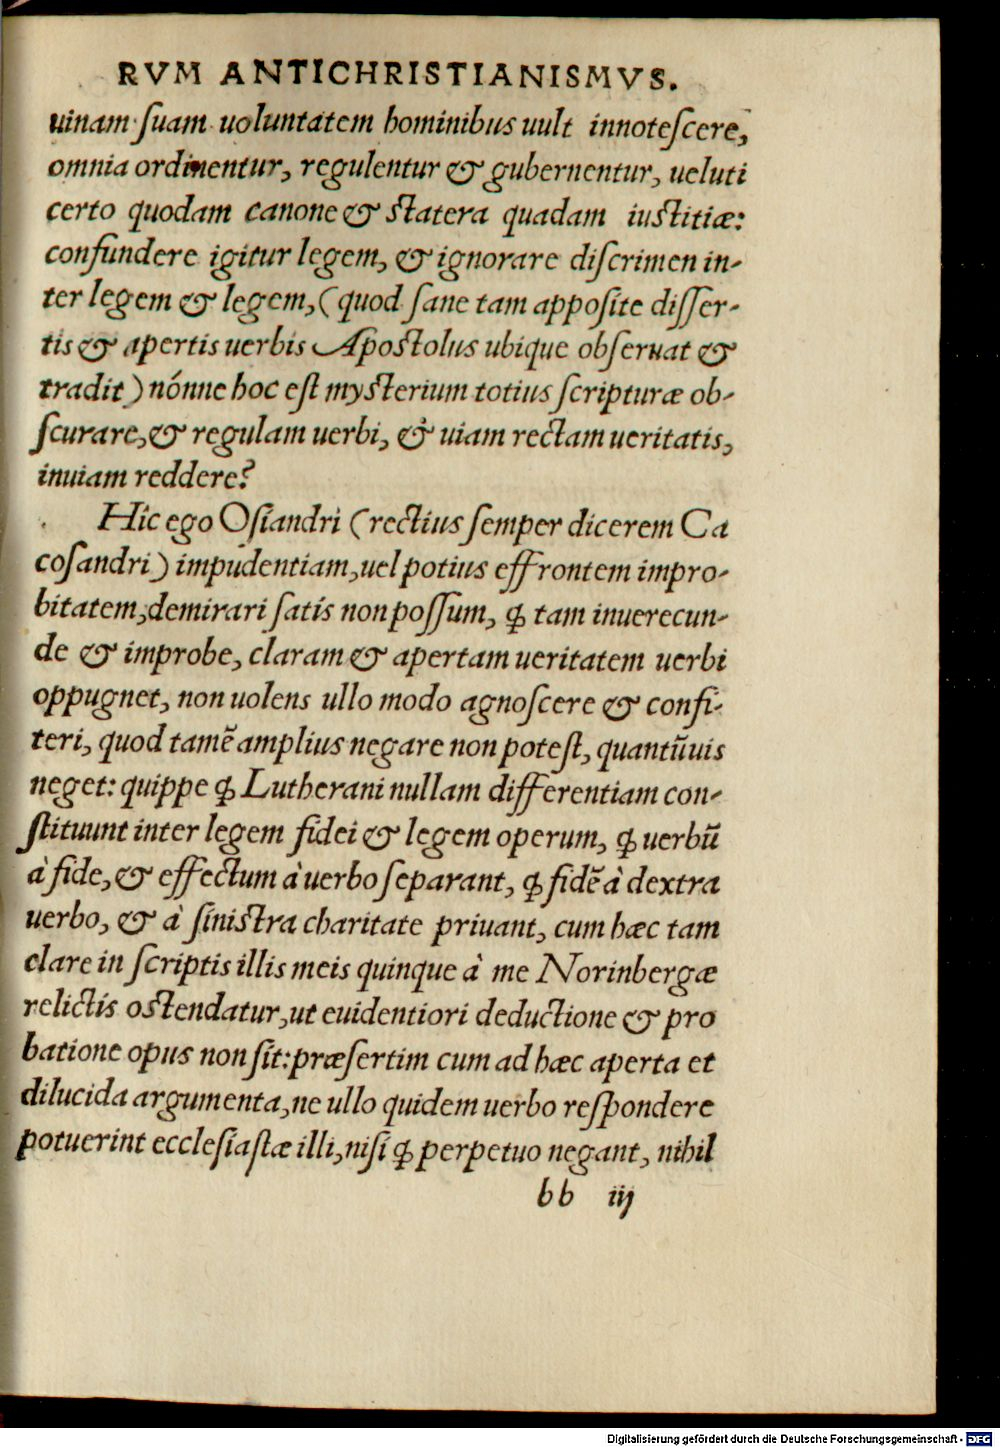 RVM ANTICHRISTIANISMVS.
uinam suam uoluntatem hominibus uult innotescere,
omnia ordinentur, regulentur & gubernentur, ueluti
certo quodam canone & statera quadam iustitiæ:
confundere igitur legem, & ignorare discrimen in-
ter legem & legem, (quod sane tam apposite disser-
tis & apertis uerbis Apostolus ubique obseruat &
tradit) nónne hoc est mysterium totius scripturæ ob-
scurare, & regulam uerbi, & uiam rectam ueritatis,
inuiam reddere?
Hîc ego Osiandri (rectius semper dicerem Ca
cosandri) impudentiam, uel potius effrontem impro-
bitatem, demirari satis non possum, ꝙ tam inuerecun-
de & improbe, claram & apertam ueritatem uerbi
oppugnet, non uolens ullo modo agnoscere & confi-
teri, quod tamẽ amplius negare non potest, quantũuis
neget: quippe ꝙ Lutherani nullam differentiam con-
stituunt inter legem fidei & legem operum, ꝙ uerbũ
à fide, & effectum à uerbo separant, ꝙ fidẽ à dextra
uerbo, & à sinistra charitate priuant, cum hæc tam
clare in scriptis illis meis quinque à me Norinbergæ
relictis ostendatur, ut euidentiori deductione & pro
batione opus non sit: præsertim cum ad hæc aperta et
dilucida argumenta, ne ullo quidem uerbo respondere
potuerint ecclesiastæ illi, nisi ꝙ perpetuo negant, nihil
bb iij
Digitalisierung gefördert durch die Deutsche Forschungsgemeinschaft - DFG